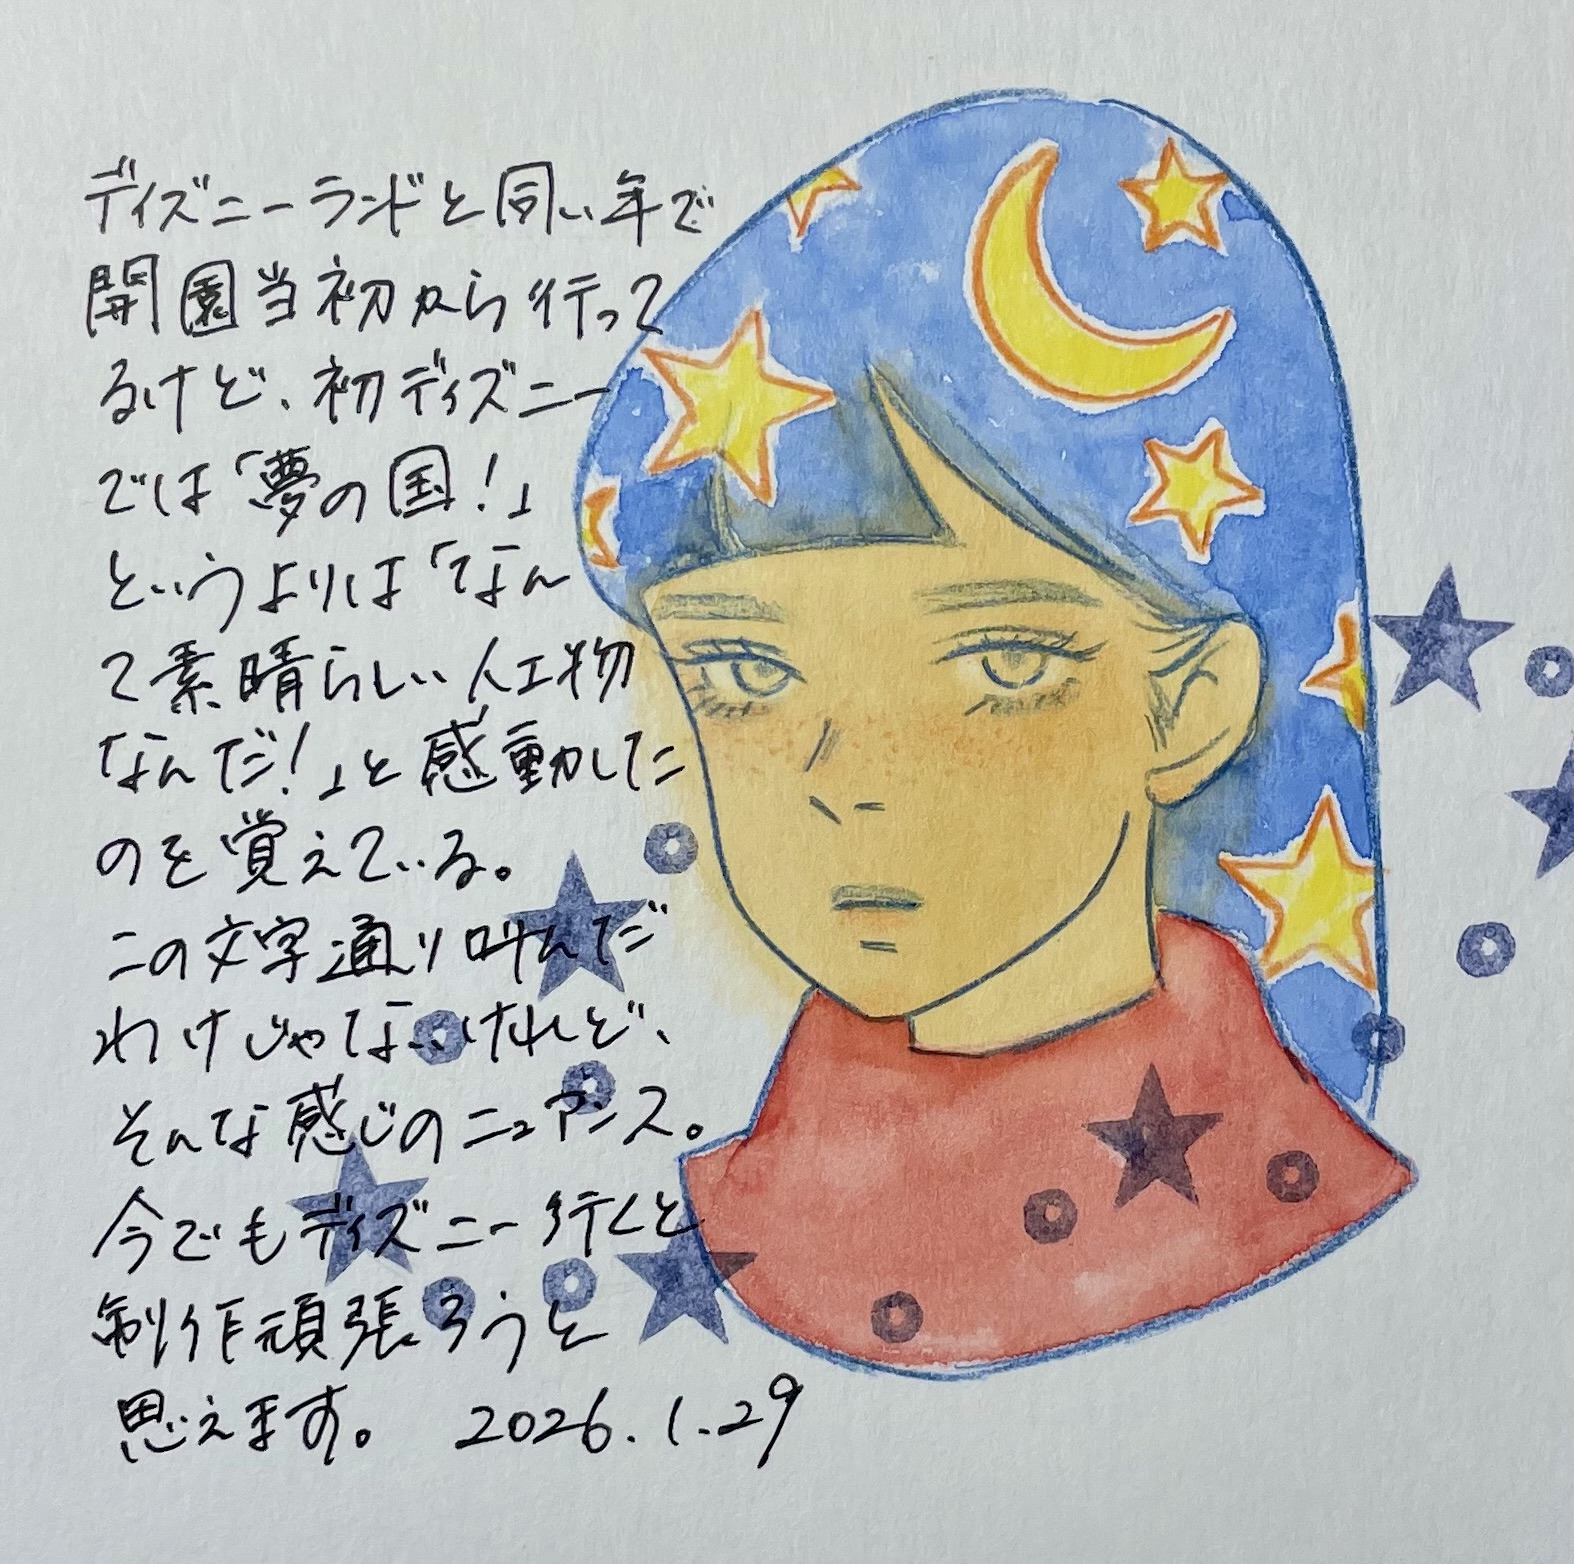 ディズニーランドと同い年で
開園当初から行って
るけど、初ディズニー
では「夢の国！」
というよりは「なん
て素晴らしい人工物
なんだ！」と感動した
のを覚えている。
この文字通り叫んだ
わけじゃないけれど、
そんな感じのニュアンス。
今でもディズニー行くと
制作頑張ろうと
思えます。 2026.1.29